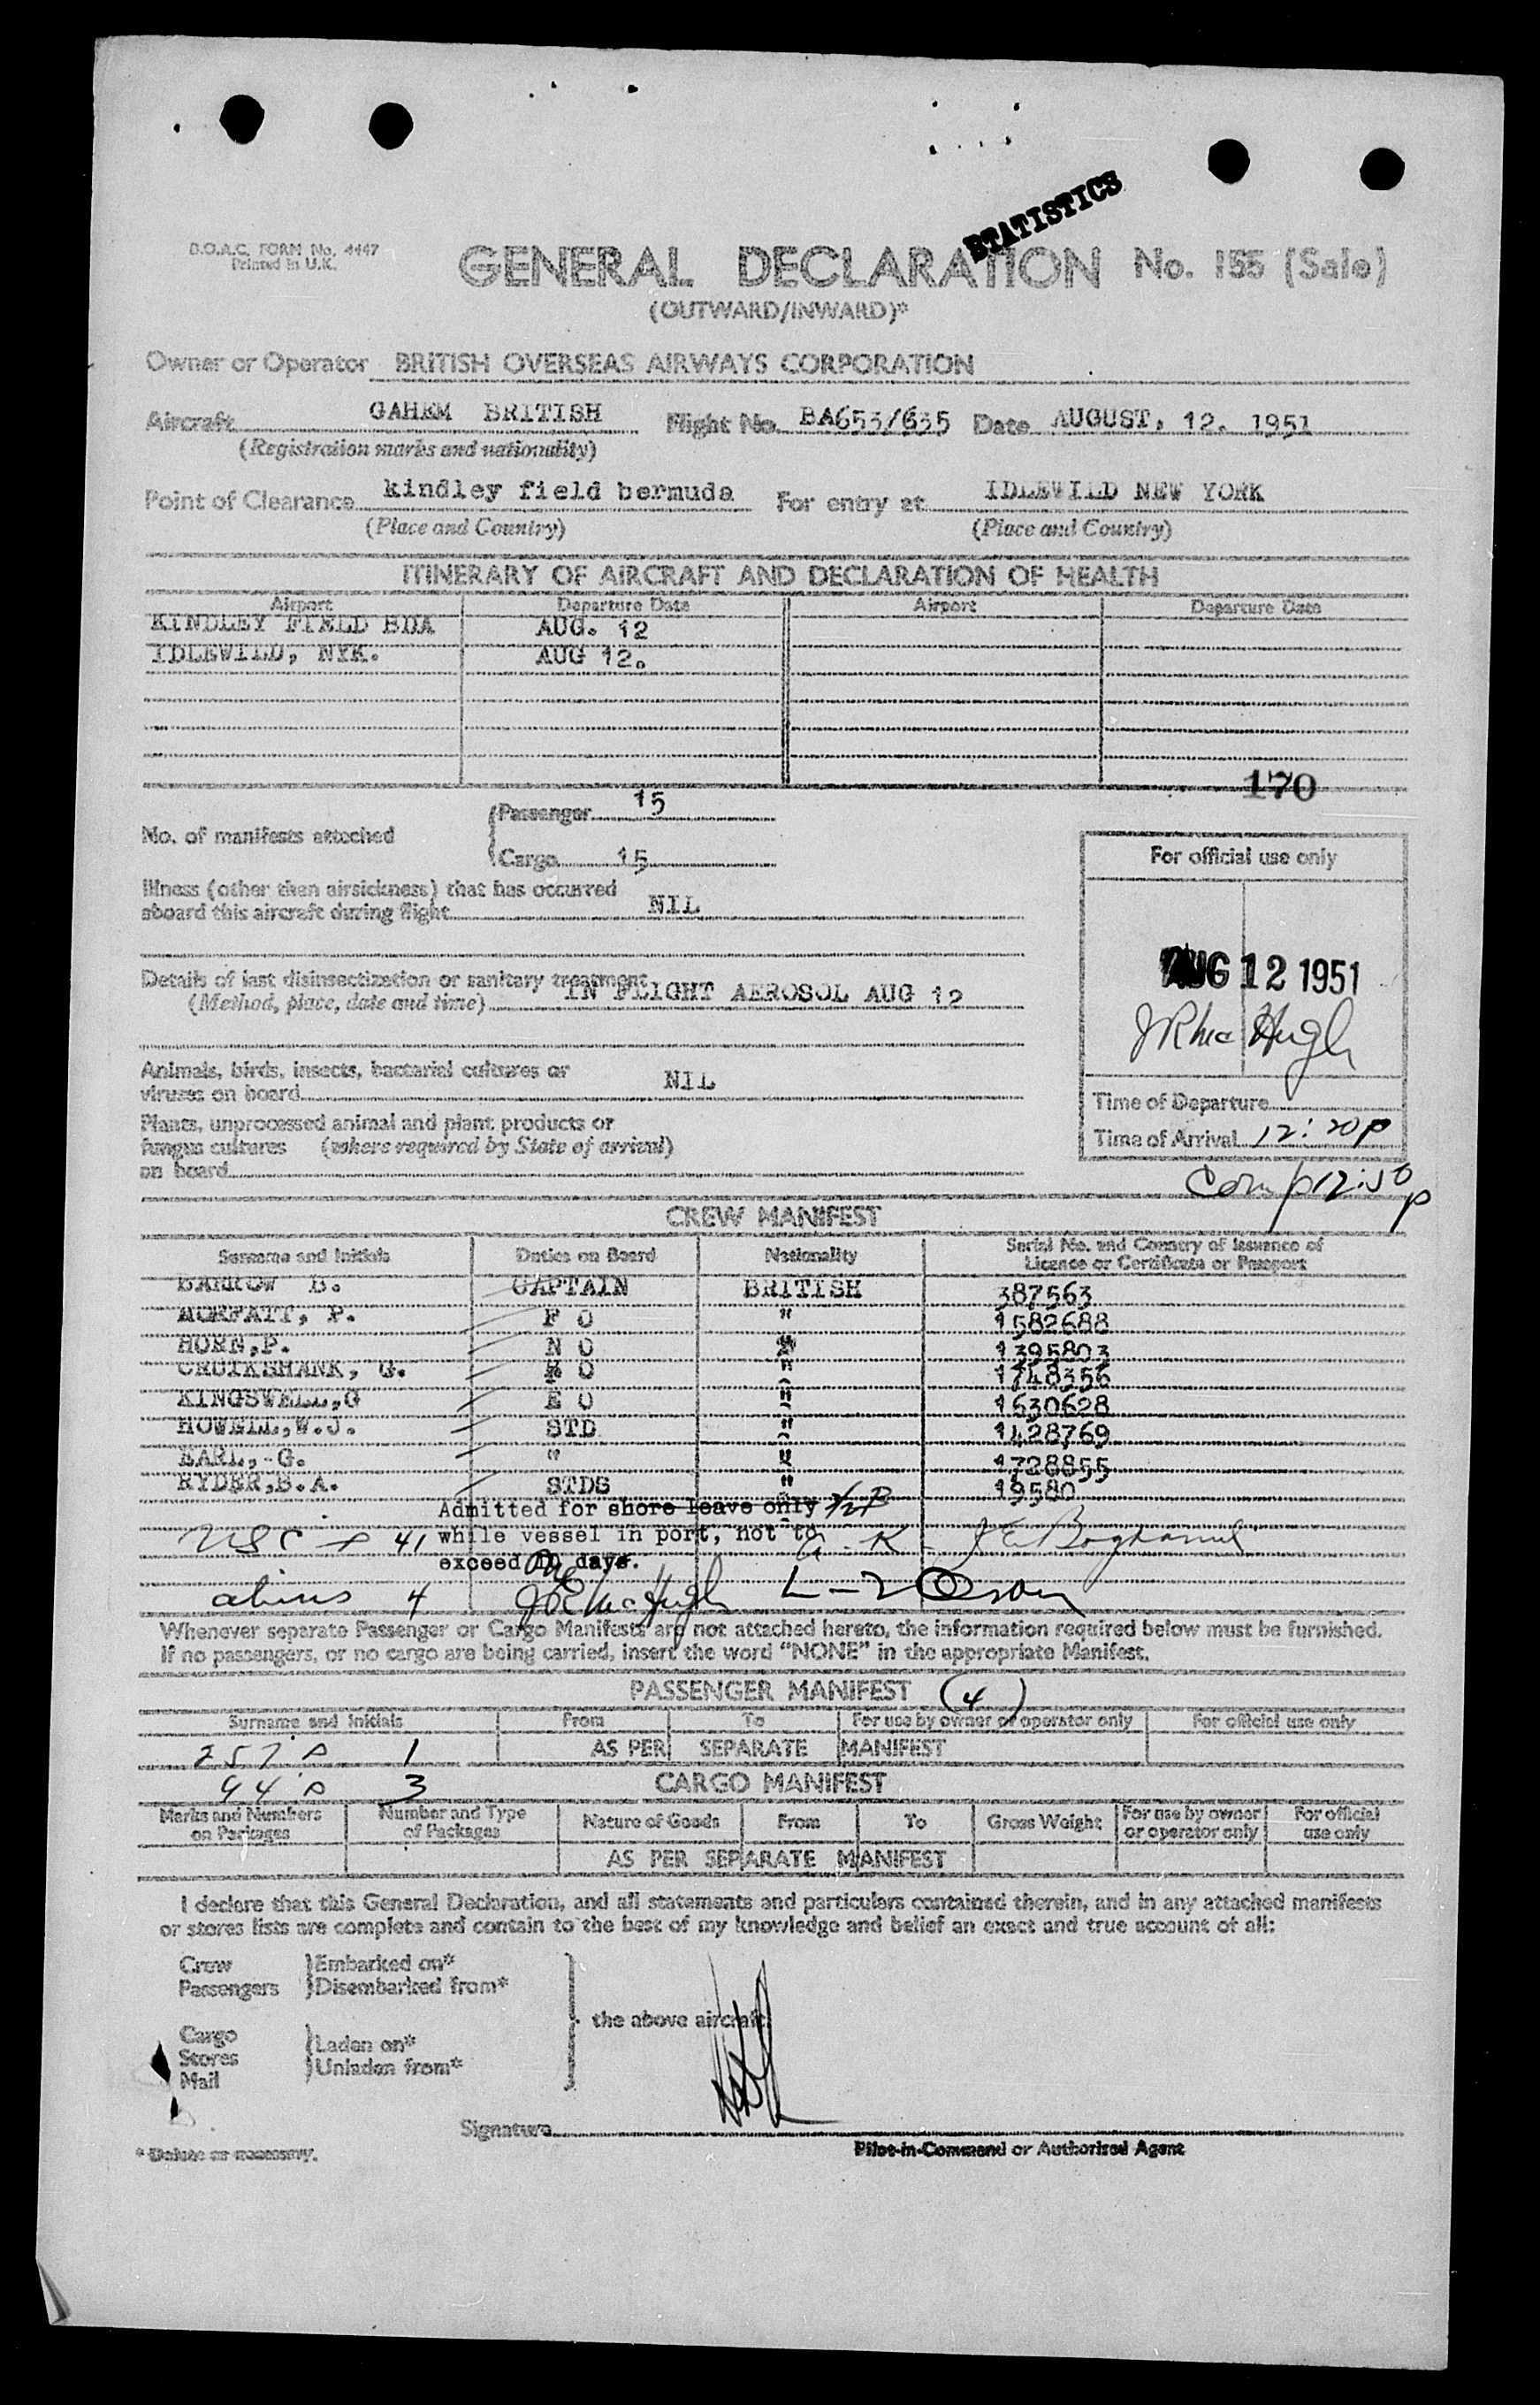 STATISTICS
B.O.A.C. FORM No. 4447
Printed in U.K.
GENERAL DECLARATION No. 155 (Sale)
(OUTWARD/INWARD)*
Owner or Operator BRITISH OVERSEAS AIRWAYS CORPORATION
Aircraft GAHEM BRITISH Flight No. BA653/635 Date AUGUST, 12. 1951
(Registration marks and nationality)
Point of Clearance kindley field bermuda For entry at IDLEWILD NEW YORK
(Place and Country) (Place and Country)
ITINERARY OF AIRCRAFT AND DECLARATION OF HEALTH
Airport Departure Date Airport Departure Date
KINDLEY FIELD BDA AUG. 12
IDLEWILD, NYK. AUG 12.
170
No. of manifests attached
Passenger 15
Cargo 15
For official use only
Illness (other than airsickness) that has occurred
aboard this aircraft during flight NIL
AUG 12 1951
Details of last disinsectization or sanitary treatment
(Method, place, date and time) IN FLIGHT AEROSOL AUG 12
JR McHugh
Animals, birds, insects, bacterial cultures or
viruses on board NIL
Time of Departure
Plants, unprocessed animal and plant products or
fungus cultures (where required by State of arrival)
on board
Time of Arrival 12:20p
Comp 12:50p
CREW MANIFEST
Surname and Initials Duties on Board Nationality Serial No. and Country of Issuance of
Licence or Certificate or Passport
BARROW B. CAPTAIN BRITISH 387563
MORFATT, P. F O " 1582688
HORN,P. N O " 1395803
CRUIKSHANK, G. R O " 1748356
KINGSWELL,G E O " 1630628
HOWELL,W.J. STD " 1428769
EARL, G. " " 1728855
RYDER,B.A. STDS " 19580
Admitted for shore leave only
USC 41 while vessel in port, not to
exceed 10 days.
aliens 4 JR McHugh
Whenever separate Passenger or Cargo Manifests are not attached hereto, the information required below must be furnished.
If no passengers, or no cargo are being carried, insert the word "NONE" in the appropriate Manifest.
PASSENGER MANIFEST (4)
Surname and Initials From To For use by owner or operator only For official use only
257's 1 AS PER SEPARATE MANIFEST
94's 3 CARGO MANIFEST
Marks and Numbers on Packages Number and Type of Packages Nature of Goods From To Gross Weight For use by owner or operator only For official use only
AS PER SEPARATE MANIFEST
I declare that this General Declaration, and all statements and particulars contained therein, and in any attached manifests
or stores lists are complete and contain to the best of my knowledge and belief an exact and true account of all:
Crew Embarked on*
Passengers Disembarked from*
the above aircraft
Cargo
Stores Laden on*
Mail Unladen from*
Signature
* Delete as necessary.
Pilot-in-Command or Authorised Agent